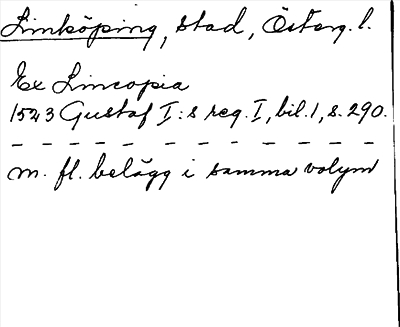 Linköping, stad, Österg. l.
Ex Lincopia
1523 Gustaf I:s reg. I, bil. 1, s. 290.
- - - - - - - - - - - - - -
m. fl. belägg i samma volym